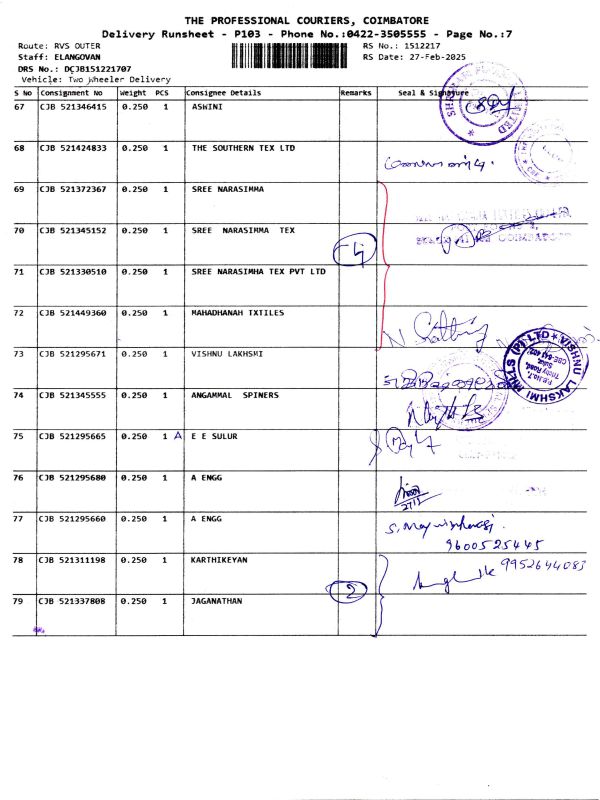 THE PROFESSIONAL COURIERS, COIMBATORE
Delivery Runsheet - P103 - Phone No.:0422-3505555 - Page No.:7
Route: RVS OUTER RS No.: 1512217
Staff: ELANGOVAN RS Date: 27-Feb-2025
DRS No.: DCJB151221707
Vehicle: Two Wheeler Delivery
S No Consignment No Weight PCS Consignee Details Remarks Seal & Signature
67 CJB 521346415 0.250 1 ASWINI
68 CJB 521424833 0.250 1 THE SOUTHERN TEX LTD
69 CJB 521372367 0.250 1 SREE NARASIMMA
70 CJB 521345152 0.250 1 SREE NARASIMMA TEX
71 CJB 521330510 0.250 1 SREE NARASIMHA TEX PVT LTD
72 CJB 521449360 0.250 1 MAHADHANAH TXTILES
73 CJB 521295671 0.250 1 VISHNU LAKHSMI
VISHNU LAKSHMI MILLS (P) LTD
74 CJB 521345555 0.250 1 ANGAMMAL SPINERS
75 CJB 521295665 0.250 1 A E E SULUR
76 CJB 521295680 0.250 1 A ENGG
77 CJB 521295660 0.250 1 A ENGG
9600525445
78 CJB 521311198 0.250 1 KARTHIKEYAN
9952644083
2
79 CJB 521337808 0.250 1 JAGANATHAN